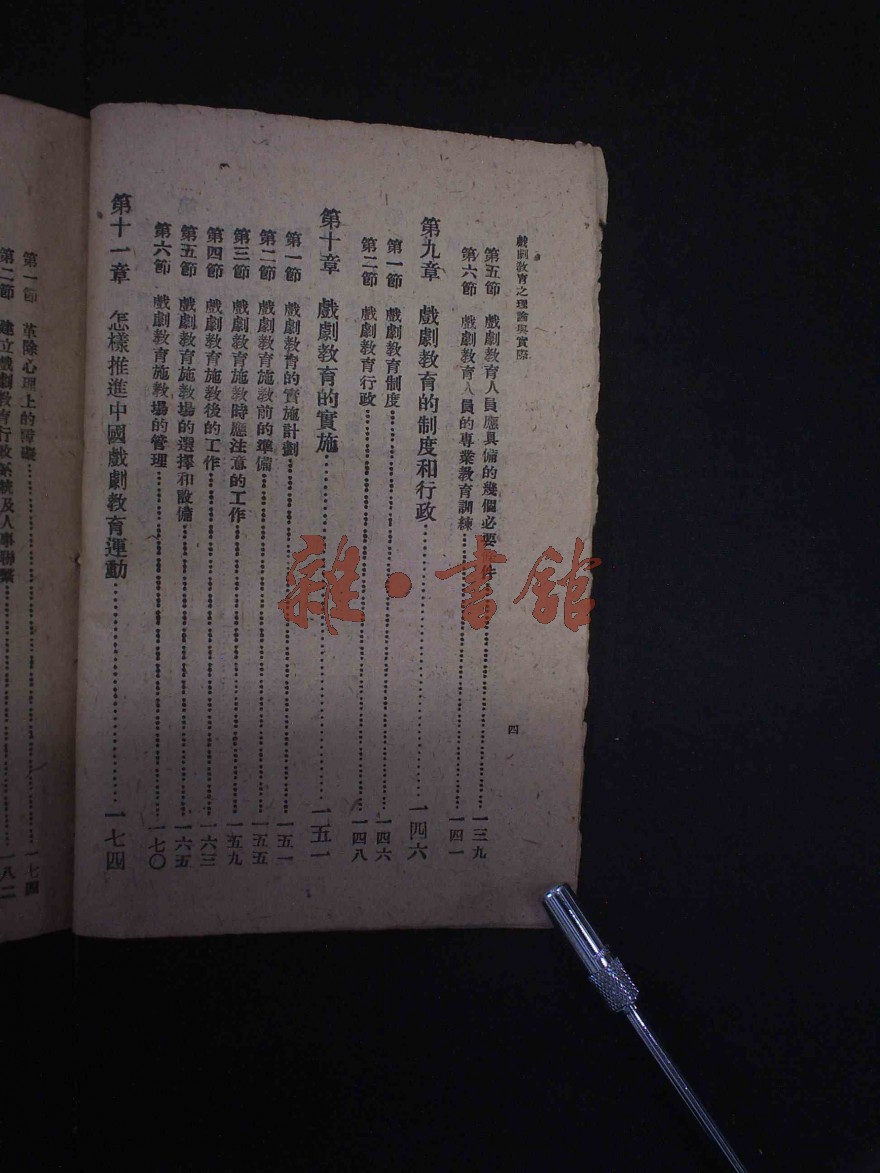 戲劇敎育之理論與實際
四
第五節 戲劇敎育人員應具備的幾個必要 件…一三九
第六節 戲劇敎育人員的專業敎育訓練…一四一
第九章 戲劇敎育的制度和行政…一四六
第一節 戲劇敎育制度…一四六
第二節 戲劇敎育行政…一四八
第十章 戲劇敎育的實施…一五一
第一節 戲劇敎育的實施計劃…一五一
第二節 戲劇敎育施敎前的準備…一五五
第三節 戲劇敎育施敎時應注意的工作…一五九
第四節 戲劇敎育施敎後的工作…一六三
第五節 戲劇敎育施敎場的選擇和設備…一六五
第六節 戲劇敎育施敎場的管理…一七〇
第十一章 怎樣推進中國戲劇敎育運動…一七四
第一節 革除心理上的障礙…一七四
第二節 建立戲劇敎育行政系統及人事聯繫…一八二
雜·書館